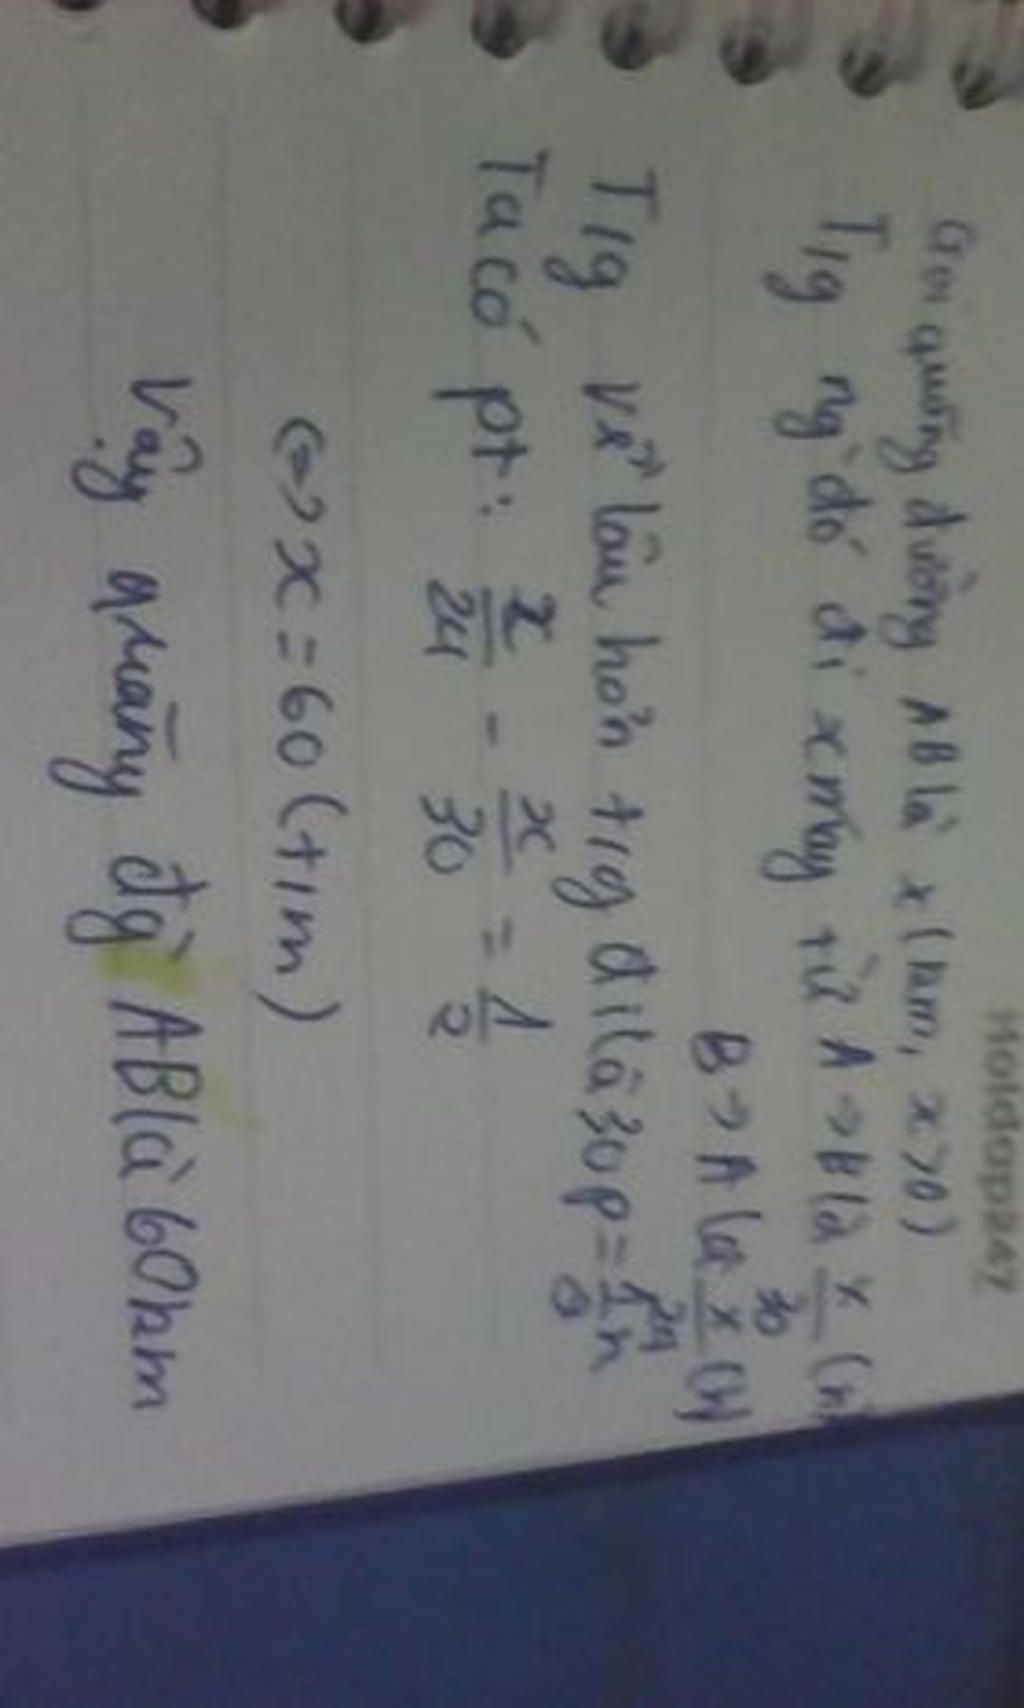 Hoidap247
Gọi quãng đường AB là x (km, x>0)
T/g ng` đó đi x máy từ A -> B là x/30 (h)
B -> A là x/24 (h)
T/g về lâu hơn t/g đi là 30p = 1/2 h
Ta có pt: x/24 - x/30 = 1/2
<=> x = 60 (t/m)
Vậy quãng đg` AB là 60km